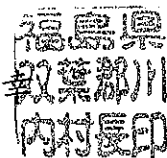 福島県
双葉郡川
内村長印
幸